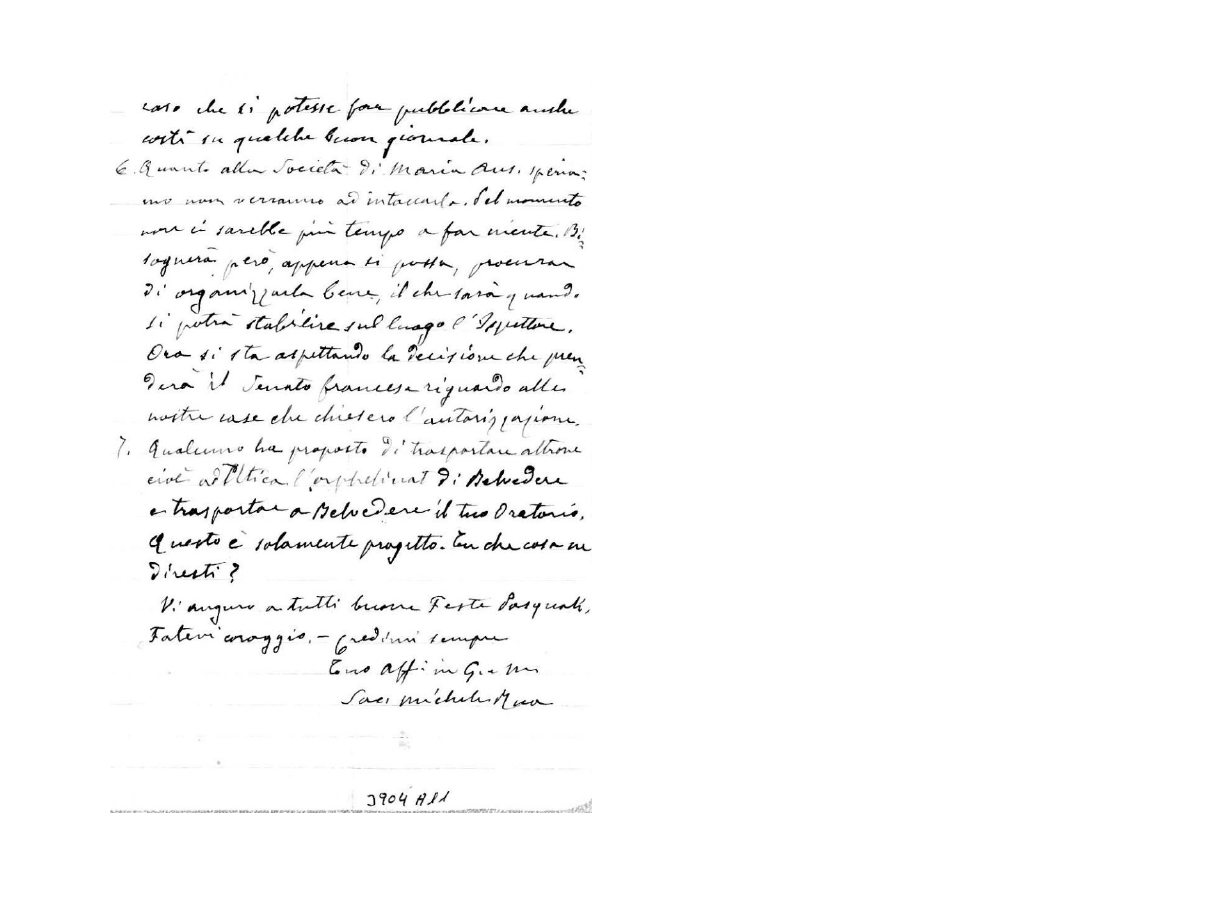 caso che si potesse far pubblicare anche
costì su qualche buon giornale.
6. Quanto alla Società di Maria Aus. speria=
mo non verranno ad intaccarla. Pel momento
non ci sarebbe più tempo a far niente. Bi=
sognerà però, appena si possa, procurar
di organizzarla bene, il che sarà quando
si potrà stabilire sul luogo l'Ispettore.
Ora si sta aspettando la decisione che pren=
derà il Senato francese riguardo alle
nostre case che chiesero l'autorizzazione.
7. Qualcuno ha proposto di trasportare altrove
cioè ad Utica l'orphelinat di Belvedere
e trasportar a Belvedere il tuo Oratorio.
Questo è solamente progetto. Tu che cosa ne
diresti?
Vi auguro a tutti buone Feste Pasquali.
Fatevi coraggio. – Credimi sempre
Tuo Aff in G. e M.
Sac. Michele Rua
3904 A11